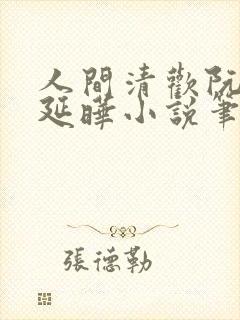 人間清歡阮
延曄小說筆
張德勒